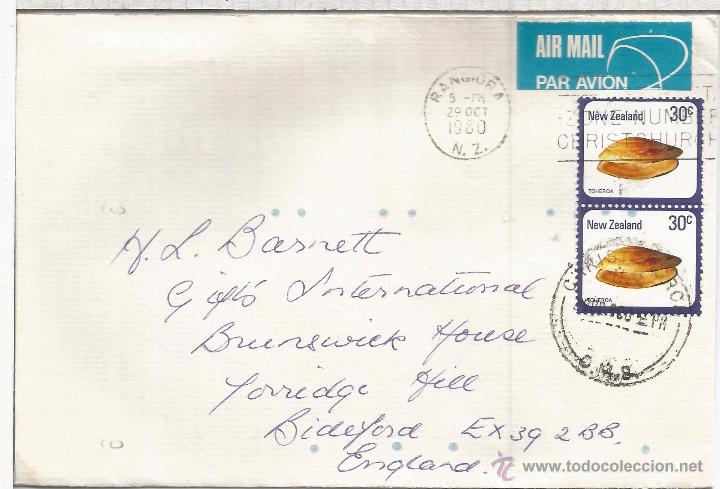 AIR MAIL
PAR AVION
RANGIORA
5 - PM
29 OCT
1980
N. Z.
ZONE NUMBER
CHRISTCHURCH
New Zealand 30c
TOHEROA
New Zealand 30c
TOHEROA
H. L. Barnett
Gifts International
Brunswick House
Torridge Hill
Bideford EX39 2BB.
England.
www.todocoleccion.net